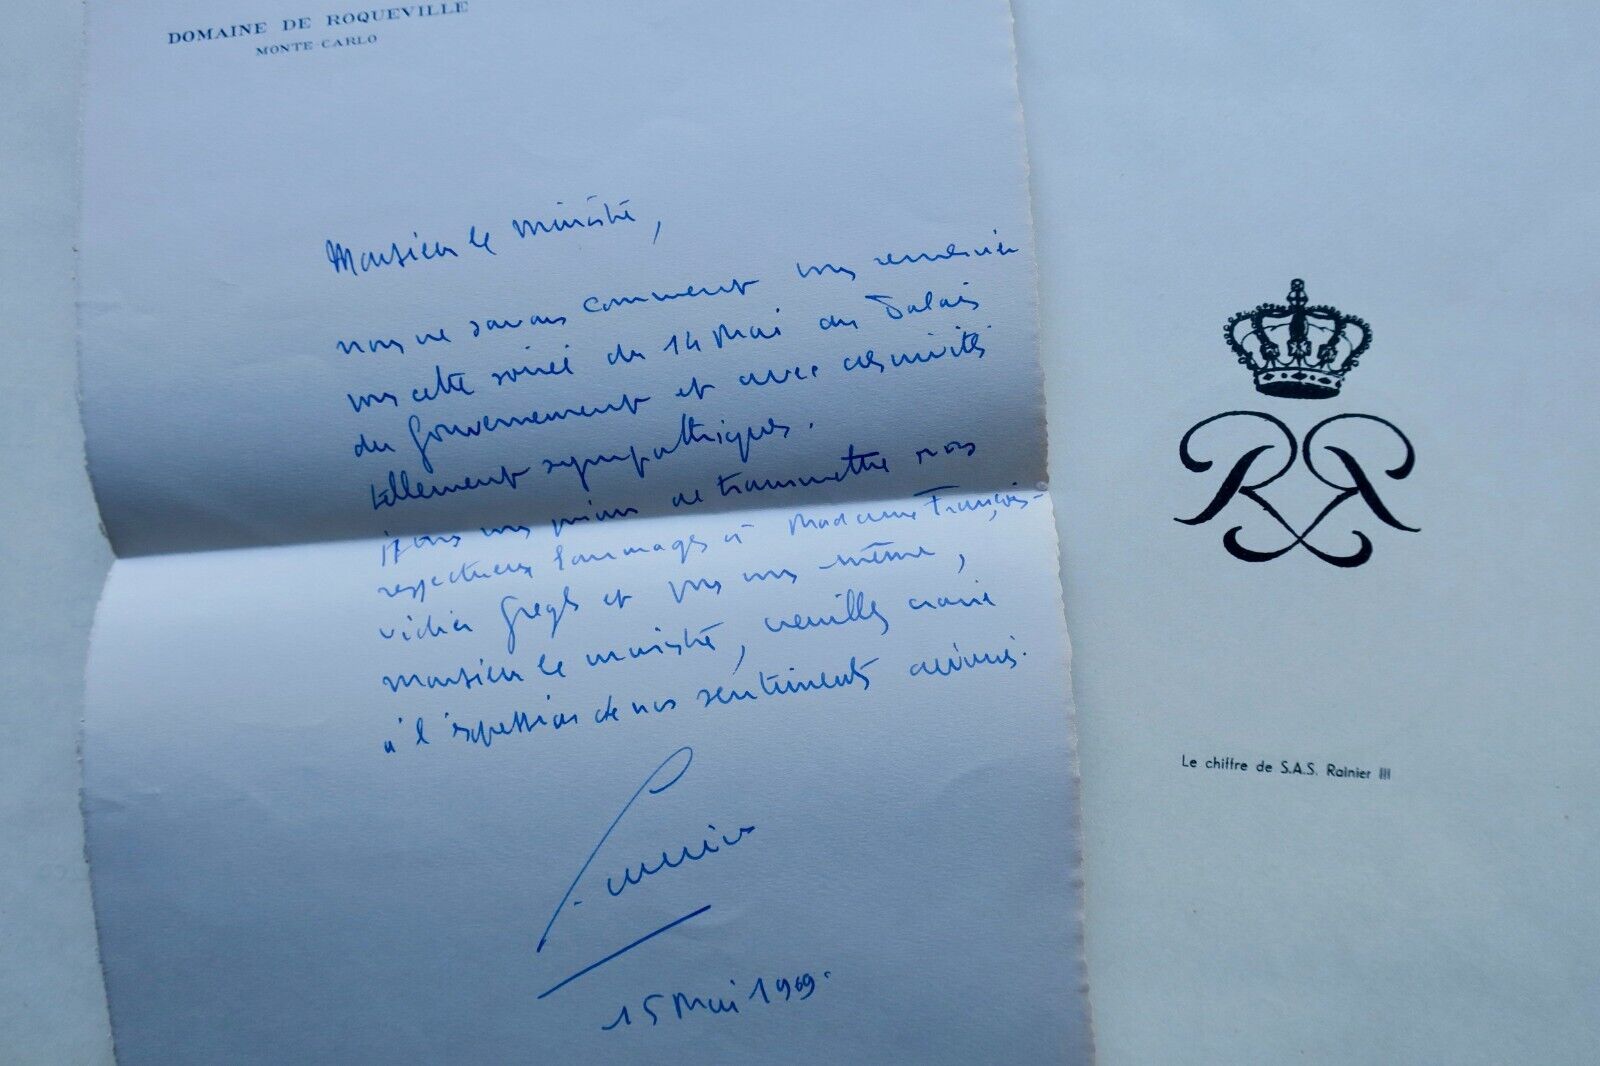 DOMAINE DE ROQUEVILLE
MONTE-CARLO
Monsieur le Ministre,
nous ne savons comment vous remercier
vos cette soirée du 14 Mai au Palais
du Gouvernement et avec des invités
tellement sympathiques.
vous de transmettre nos
respectueux hommages à Madame François-
Didier Gregh et vous même,
Monsieur le ministre, veuillez croire
à l'expression de nos sentiments
15 Mai 1969.
Le chiffre de S.A.S. Rainier III